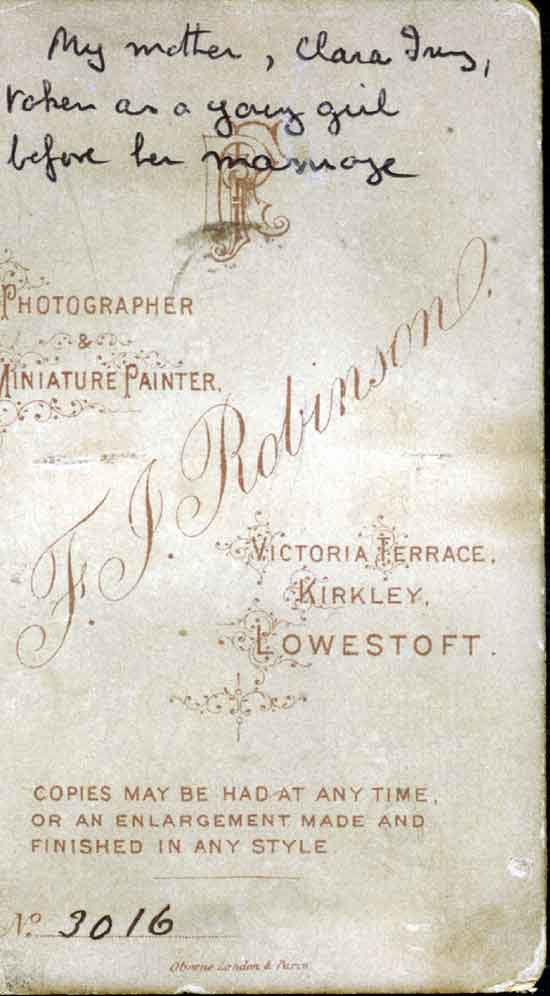 My mother, Clara
taken as a young girl
before her marriage
PHOTOGRAPHER
&
MINIATURE PAINTER.
F. J. Robinson.
VICTORIA TERRACE,
KIRKLEY,
LOWESTOFT.
COPIES MAY BE HAD AT ANY TIME,
OR AN ENLARGEMENT MADE AND
FINISHED IN ANY STYLE
No. 3016
London & Paris